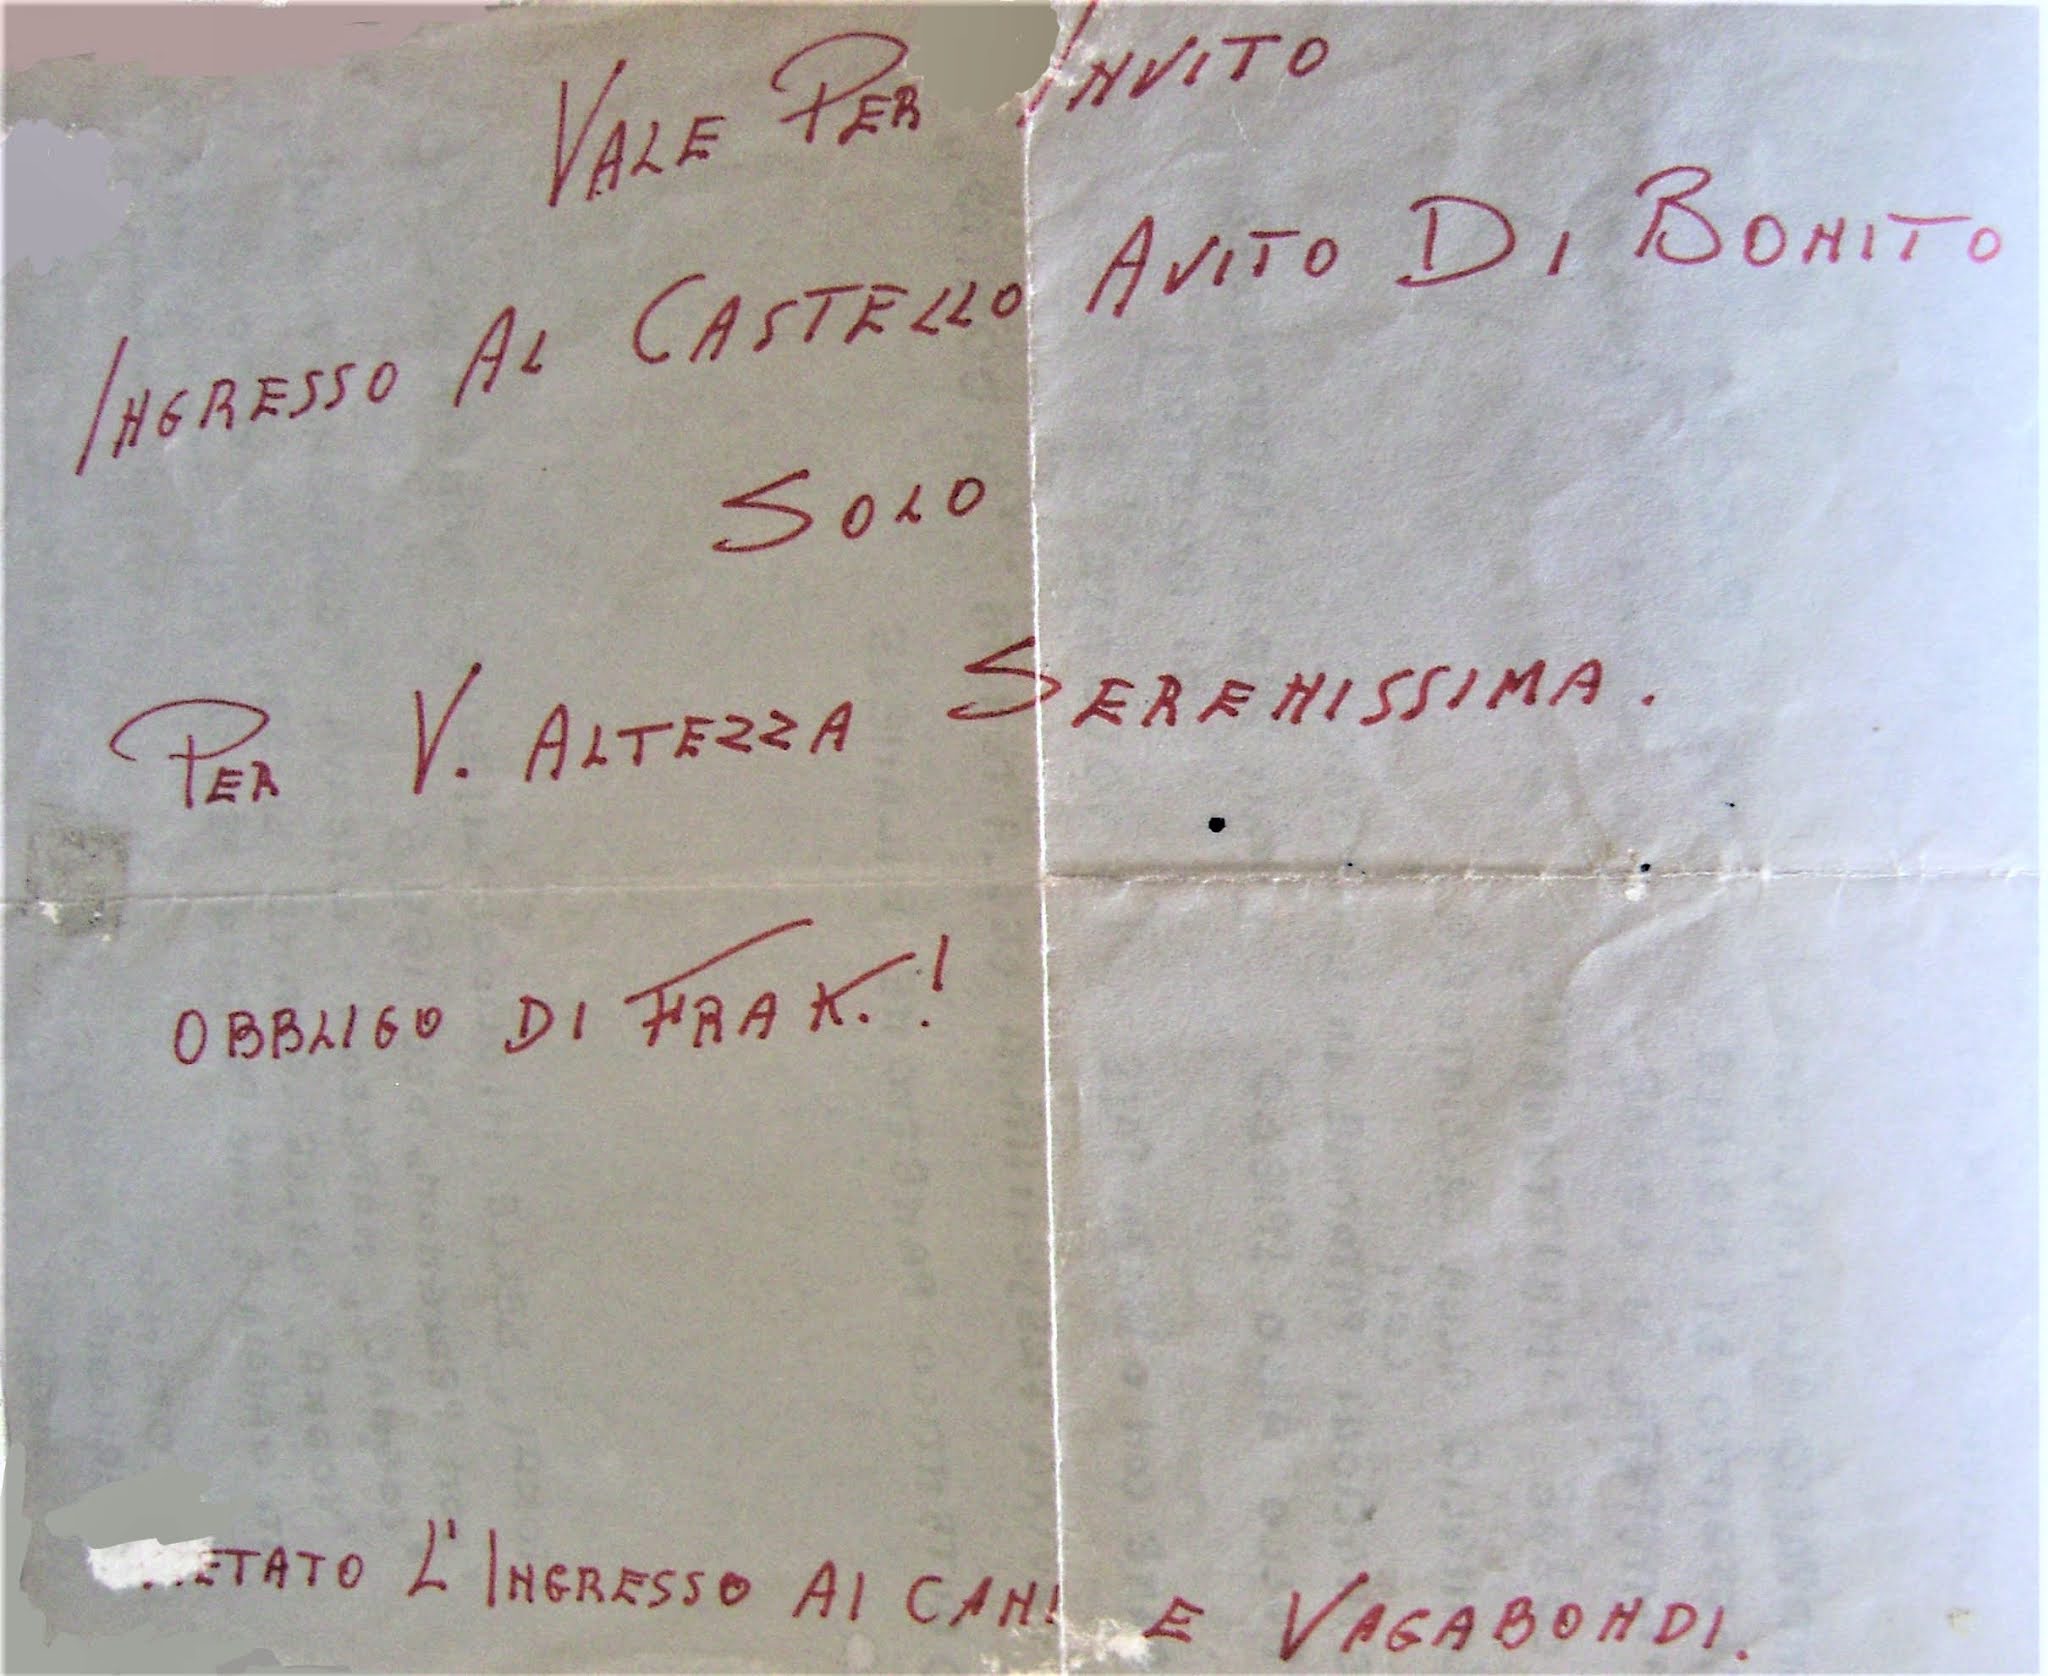 VALE PER INVITO
INGRESSO AL CASTELLO AVITO DI BONITO
SOLO
PER V. ALTEZZA SERENISSIMA.
OBBLIGO DI FRAK.!
IETATO L'INGRESSO AI CANI E VAGABONDI.